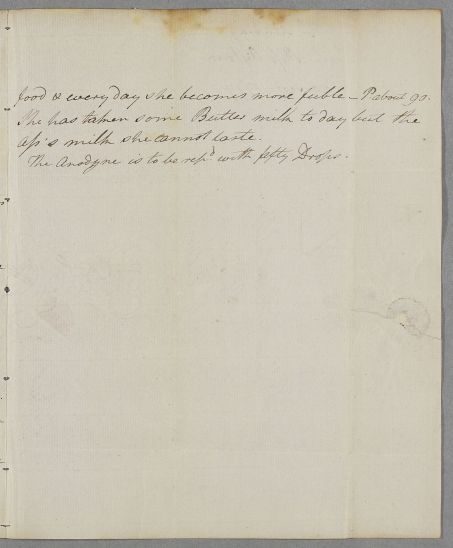 food & every day she becomes more feeble – P about 90.
She has taken some Butter milk to day but the
Ass's milk she cannot taste.
The Anodyne is to be repd with fifty Drops.